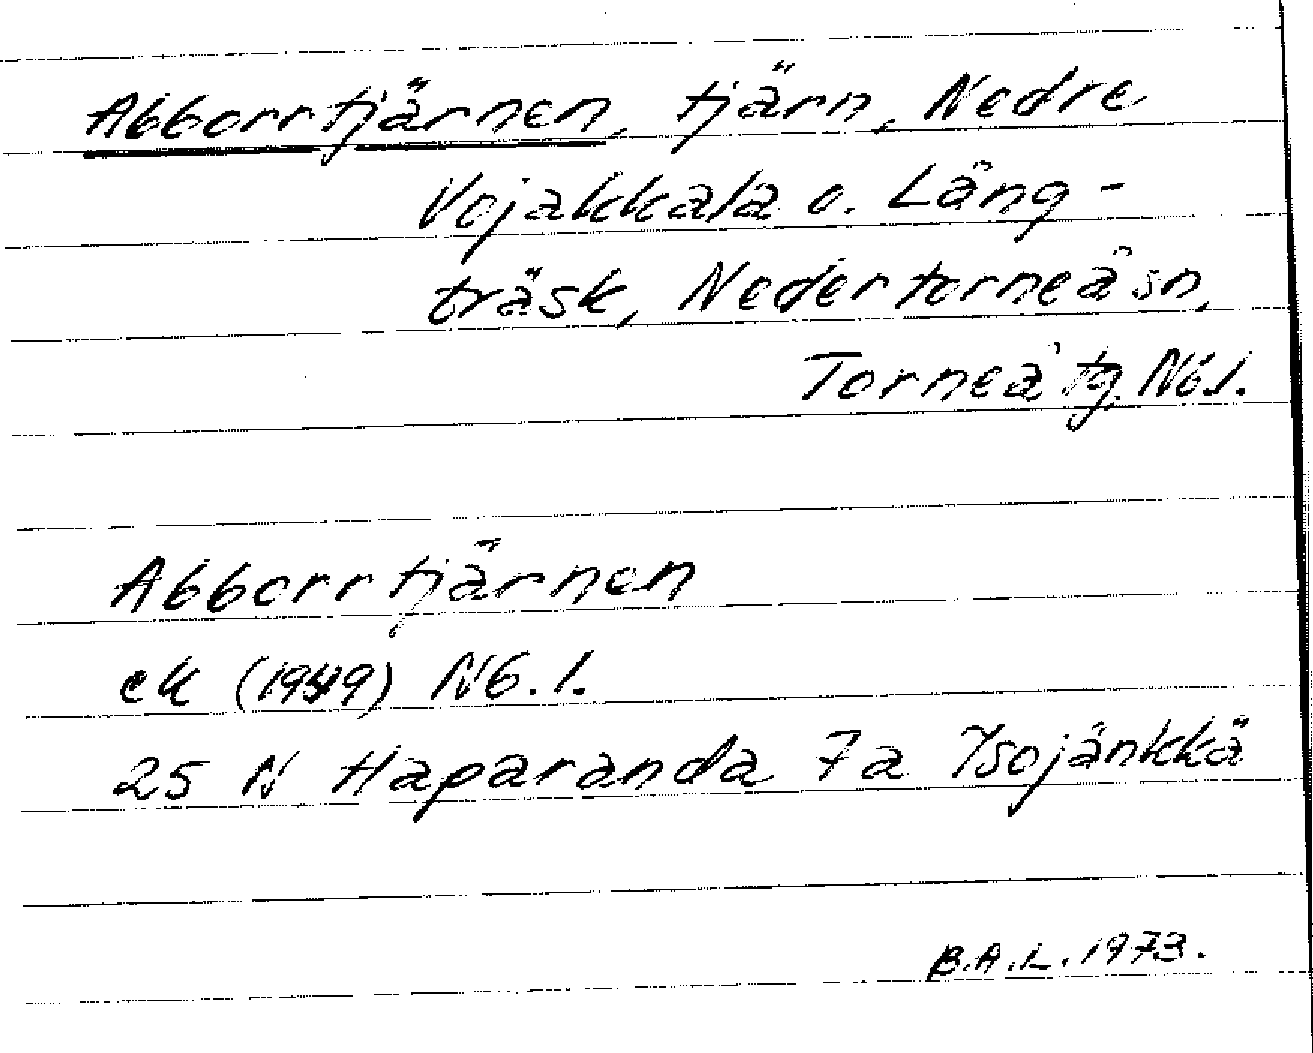 Abborrtjärnen, tjärn, Nedre
Vojakkala o. Lång-
träsk, Nedertorneå sn,
Torneå tg. Nb l.
Abborrtjärnen
ek (1949) Nb. l.
25 N Haparanda 7a Isojänkkä
B.A.L. 1973.